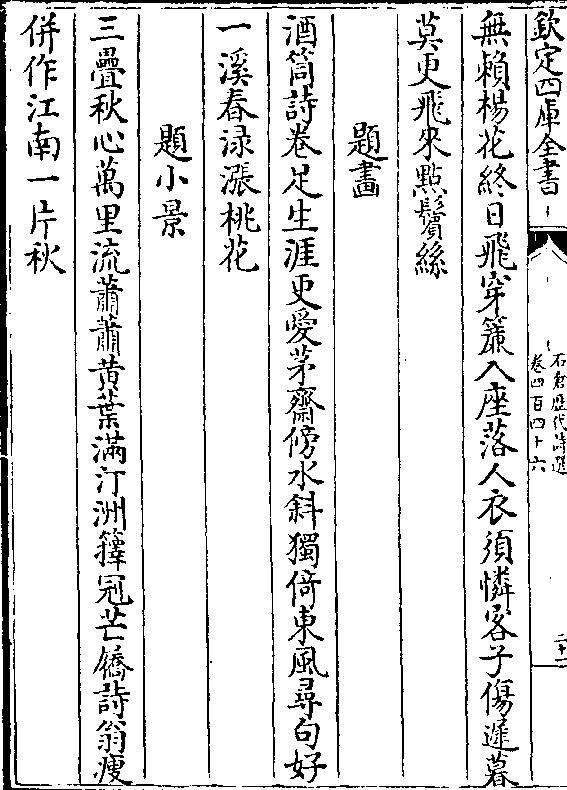 欽定四庫全書
石倉歴代詩選
卷四百四十六
二十一
無賴楊花終日飛穿簾入座落人衣須憐客子傷遲暮
莫更飛來點鬢絲
題畫
酒筒詩卷足生涯更愛茅齋傍水斜獨倚東風尋句好
一溪春渌漲桃花
題小景
三疊秋心萬里流蕭蕭黄葉滿汀洲籜冠芒屩詩翁瘦
併作江南一片秋